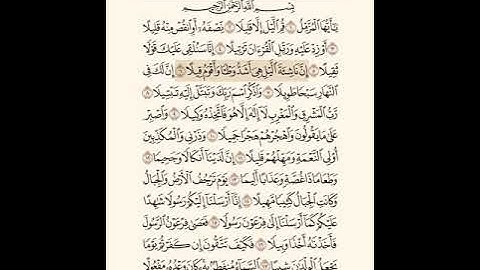 بِسْمِ اللَّهِ الرَّحْمَٰنِ الرَّحِيمِ
يَا أَيُّهَا الْمُزَّمِّلُ ١ قُمِ اللَّيْلَ إِلَّا قَلِيلًا ٢ نِّصْفَهُ أَوِ انقُصْ مِنْهُ قَلِيلًا
٣ أَوْ زِدْ عَلَيْهِ وَرَتِّلِ الْقُرْآنَ تَرْتِيلًا ٤ إِنَّا سَنُلْقِي عَلَيْكَ قَوْلًا
ثَقِيلًا ٥ إِنَّ نَاشِئَةَ اللَّيْلِ هِيَ أَشَدُّ وَطْئًا وَأَقْوَمُ قِيلًا ٦ إِنَّ لَكَ فِي
النَّهَارِ سَبْحًا طَوِيلًا ٧ وَاذْكُرِ اسْمَ رَبِّكَ وَتَبَتَّلْ إِلَيْهِ تَبْتِيلًا ٨
رَّبُّ الْمَشْرِقِ وَالْمَغْرِبِ لَا إِلَٰهَ إِلَّا هُوَ فَاتَّخِذْهُ وَكِيلًا ٩ وَاصْبِرْ
عَلَىٰ مَا يَقُولُونَ وَاهْجُرْهُمْ هَجْرًا جَمِيلًا ١٠ وَذَرْنِي وَالْمُكَذِّبِينَ
أُولِي النَّعْمَةِ وَمَهِّلْهُمْ قَلِيلًا ١١ إِنَّ لَدَيْنَا أَنكَالًا وَجَحِيمًا ١٢
وَطَعَامًا ذَا غُصَّةٍ وَعَذَابًا أَلِيمًا ١٣ يَوْمَ تَرْجُفُ الْأَرْضُ وَالْجِبَالُ
وَكَانَتِ الْجِبَالُ كَثِيبًا مَّهِيلًا ١٤ إِنَّا أَرْسَلْنَا إِلَيْكُمْ رَسُولًا شَاهِدًا
عَلَيْكُمْ كَمَا أَرْسَلْنَا إِلَىٰ فِرْعَوْنَ رَسُولًا ١٥ فَعَصَىٰ فِرْعَوْنُ الرَّسُولَ
فَأَخَذْنَاهُ أَخْذًا وَبِيلًا ١٦ فَكَيْفَ تَتَّقُونَ إِن كَفَرْتُمْ يَوْمًا
يَجْعَلُ الْوِلْدَانَ شِيبًا ١٧ السَّمَاءُ مُنفَطِرٌ بِهِ كَانَ وَعْدُهُ مَفْعُولًا